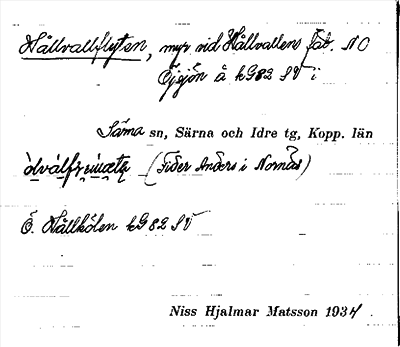 Hållvallflyten, myr vid Hållvallens fäb. NO
Öjsjön å kG82 SV i
Särna sn, Särna och Idre tg, Kopp. län
(Fider Anders i Nornäs)
Ö. Hållkölen kG82 SV
Niss Hjalmar Matsson 1934.